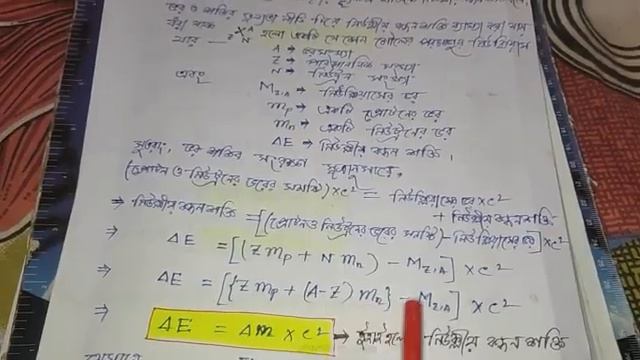 ভর ও শক্তির সাম্যতা নীতি দিয়ে নিউক্লীয় বন্ধন শক্তি ব্যাখ্যা করা যায়
ধরা যাক zXᴬN হলো একটি যে কোন মৌলের পরমাণুর নিউক্লিয়াস
যার — A → ভরসংখ্যা
Z → পারমাণবিক সংখ্যা
N → নিউট্রন সংখ্যা
এবং M_{Z,A} → নিউক্লিয়াসের ভর
m_p → একটি প্রোটনের ভর
m_n → একটি নিউট্রনের ভর
ΔE → নিউক্লীয় বন্ধন শক্তি ।
সুতরাং, ভর শক্তির সংরক্ষণ সূত্রানুসারে,
(প্রোটন ও নিউট্রনের ভরের সমষ্টি) × c² = নিউক্লিয়াসের ভর × c²
+ নিউক্লীয় বন্ধন শক্তি
⇒ নিউক্লীয় বন্ধন শক্তি = [(প্রোটন ও নিউট্রনের ভরের সমষ্টি) − নিউক্লিয়াসের ভর] × c²
⇒ ΔE = [(Z m_p + N m_n) − M_{Z,A}] × c²
⇒ ΔE = [{Z m_p + (A−Z) m_n} − M_{Z,A}] × c²
⇒ ΔE = Δm × c² → ইহাই হলো নিউক্লীয় বন্ধন শক্তি